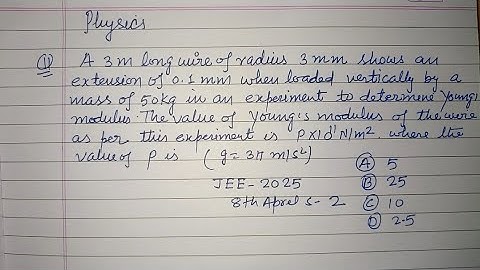 Physics
Q A 3m long wire of radius 3 mm shows an
extension of 0.1 mm when loaded vertically by a
mass of 50kg in an experiment to determine Young's
modulus. The value of Young's modulus of the wire
as per this experiment is P×10¹¹N/m², where the
value of P is (g=3π m/s²)
A 5
JEE-2025 B 25
8th April S-2 C 10
D 2.5